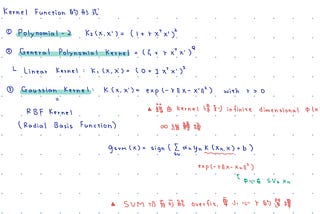 Kernel Function 的形式
① Polynomial-2 K₂(x,x') = (1 + r xᵀx')²
② General Polynomial Kernel = (ζ + r xᵀx')^Q
└ Linear Kernel: K₁(x,x') = (0 + 1 xᵀx')¹
③ Gaussian Kernel: K(x,x') = exp(-r‖x-x'‖²) with r > 0
RBF Kernel
(Radial Basis Function)
▲ 藉由 kernel 得到 infinite dimensional
∞ 維轉換
gsvm(x) = sign( Σ αₙyₙ K(xₙ,x) + b )
SV
exp(-r‖x-xₙ‖²)
中心在 SVs xₙ
▲ SVM 仍有可能 overfit, 要小心 r 的選擇